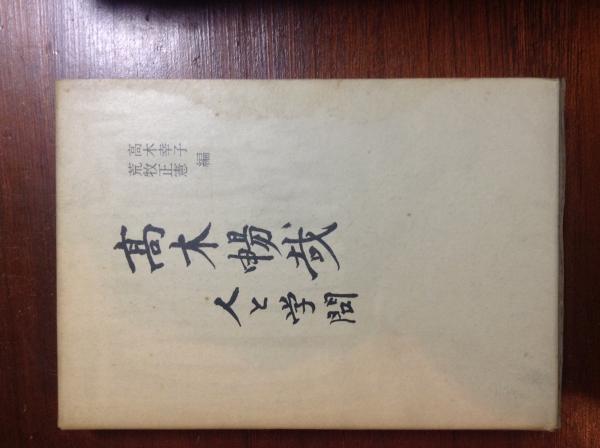 高木幸子
荒牧正憲
編
髙木暢哉
人と学問